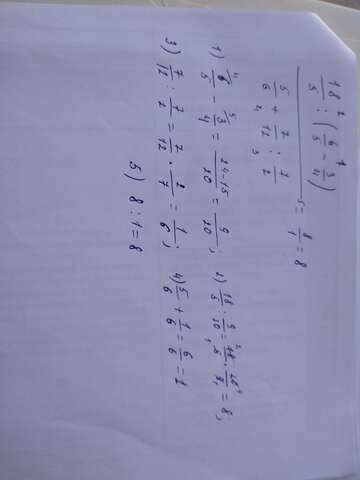 18/5 : (6/5 - 3/4)
5/6 + 7/12 : 7/2
= 8/1 = 8
1) 6/5 - 3/4 = 24-15/20 = 9/20 ; 2) 18/5 : 9/20 = 18/5 · 20/9 = 8 ;
3) 7/12 : 7/2 = 7/12 · 2/7 = 1/6 ; 4) 5/6 + 1/6 = 6/6 = 1
5) 8 : 1 = 8